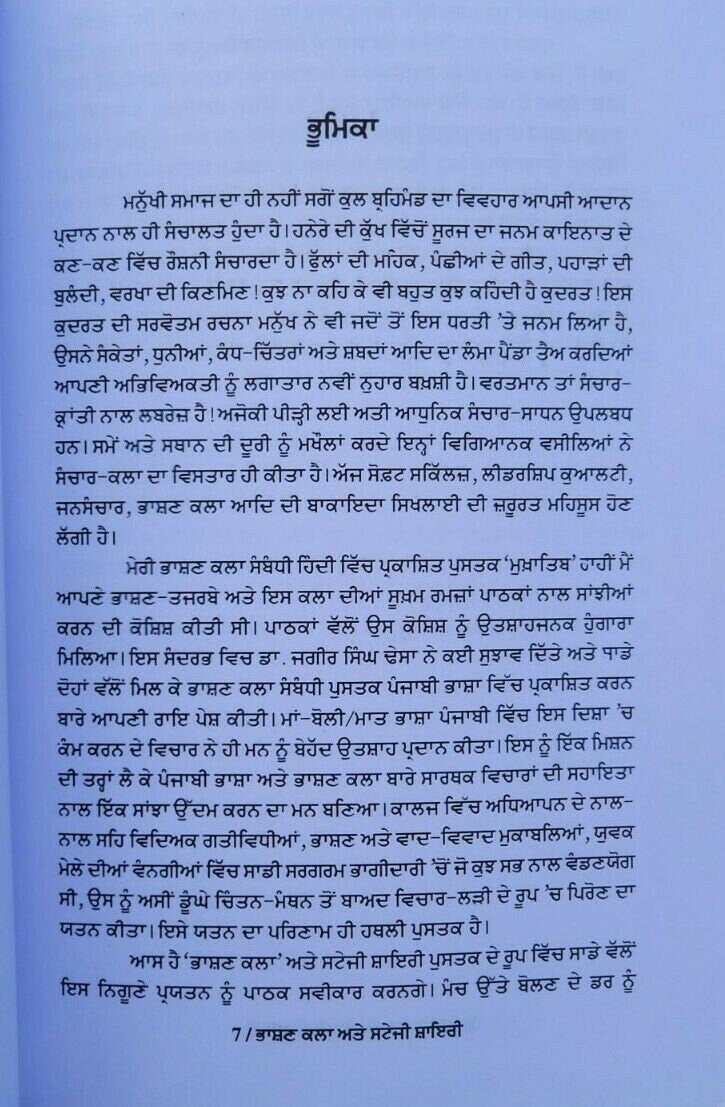 ਭੂਮਿਕਾ
ਮਨੁੱਖੀ ਸਮਾਜ ਦਾ ਹੀ ਨਹੀਂ ਸਗੋਂ ਕੁਲ ਬ੍ਰਹਿਮੰਡ ਦਾ ਵਿਵਹਾਰ ਆਪਸੀ ਆਦਾਨ
ਪ੍ਰਦਾਨ ਨਾਲ ਹੀ ਸੰਚਾਲਤ ਹੁੰਦਾ ਹੈ। ਹਨੇਰੇ ਦੀ ਕੁੱਖ ਵਿੱਚੋਂ ਸੂਰਜ ਦਾ ਜਨਮ ਕਾਇਨਾਤ ਦੇ
ਕਣ-ਕਣ ਵਿੱਚ ਰੌਸ਼ਨੀ ਸੰਚਾਰਦਾ ਹੈ। ਫੁੱਲਾਂ ਦੀ ਮਹਿਕ, ਪੰਛੀਆਂ ਦੇ ਗੀਤ, ਪਹਾੜਾਂ ਦੀ
ਬੁਲੰਦੀ, ਵਰਖਾ ਦੀ ਕਿਣਮਿਣ! ਕੁਝ ਨਾ ਕਹਿ ਕੇ ਵੀ ਬਹੁਤ ਕੁਝ ਕਹਿੰਦੀ ਹੈ ਕੁਦਰਤ! ਇਸ
ਕੁਦਰਤ ਦੀ ਸਰਵੋਤਮ ਰਚਨਾ ਮਨੁੱਖ ਨੇ ਵੀ ਜਦੋਂ ਤੋਂ ਇਸ ਧਰਤੀ ’ਤੇ ਜਨਮ ਲਿਆ ਹੈ,
ਉਸਨੇ ਸੰਕੇਤਾਂ, ਧੁਨੀਆਂ, ਕੰਧ-ਚਿੱਤਰਾਂ ਅਤੇ ਸ਼ਬਦਾਂ ਆਦਿ ਦਾ ਲੰਮਾ ਪੈਂਡਾ ਤੈਅ ਕਰਦਿਆਂ
ਆਪਣੀ ਅਭਿਵਿਅਕਤੀ ਨੂੰ ਲਗਾਤਾਰ ਨਵੀਂ ਨੁਹਾਰ ਬਖ਼ਸ਼ੀ ਹੈ। ਵਰਤਮਾਨ ਤਾਂ ਸੰਚਾਰ-
ਕ੍ਰਾਂਤੀ ਨਾਲ ਲਬਰੇਜ਼ ਹੈ! ਅਜੋਕੀ ਪੀੜ੍ਹੀ ਲਈ ਅਤੀ ਆਧੁਨਿਕ ਸੰਚਾਰ-ਸਾਧਨ ਉਪਲਬਧ
ਹਨ। ਸਮੇਂ ਅਤੇ ਸਥਾਨ ਦੀ ਦੂਰੀ ਨੂੰ ਮਖੌਲਾਂ ਕਰਦੇ ਇਨ੍ਹਾਂ ਵਿਗਿਆਨਕ ਵਸੀਲਿਆਂ ਨੇ
ਸੰਚਾਰ-ਕਲਾ ਦਾ ਵਿਸਤਾਰ ਹੀ ਕੀਤਾ ਹੈ। ਅੱਜ ਸੋਫ਼ਟ ਸਕਿੱਲਜ਼, ਲੀਡਰਸ਼ਿਪ ਕੁਆਲਟੀ,
ਜਨਸੰਚਾਰ, ਭਾਸ਼ਣ ਕਲਾ ਆਦਿ ਦੀ ਬਾਕਾਇਦਾ ਸਿਖਲਾਈ ਦੀ ਜ਼ਰੂਰਤ ਮਹਿਸੂਸ ਹੋਣ
ਲੱਗੀ ਹੈ।
ਮੇਰੀ ਭਾਸ਼ਣ ਕਲਾ ਸੰਬੰਧੀ ਹਿੰਦੀ ਵਿੱਚ ਪ੍ਰਕਾਸ਼ਿਤ ਪੁਸਤਕ ‘ਮੁਖ਼ਾਤਿਬ’ ਰਾਹੀਂ ਮੈਂ
ਆਪਣੇ ਭਾਸ਼ਣ-ਤਜਰਬੇ ਅਤੇ ਇਸ ਕਲਾ ਦੀਆਂ ਸੂਖ਼ਮ ਰਮਜ਼ਾਂ ਪਾਠਕਾਂ ਨਾਲ ਸਾਂਝੀਆਂ
ਕਰਨ ਦੀ ਕੋਸ਼ਿਸ਼ ਕੀਤੀ ਸੀ। ਪਾਠਕਾਂ ਵੱਲੋਂ ਉਸ ਕੋਸ਼ਿਸ਼ ਨੂੰ ਉਤਸ਼ਾਹਜਨਕ ਹੁੰਗਾਰਾ
ਮਿਲਿਆ। ਇਸ ਸੰਦਰਭ ਵਿਚ ਡਾ. ਜਗੀਰ ਸਿੰਘ ਢੇਸਾ ਨੇ ਕਈ ਸੁਝਾਵ ਦਿੱਤੇ ਅਤੇ ਸਾਡੇ
ਦੋਹਾਂ ਵੱਲੋਂ ਮਿਲ ਕੇ ਭਾਸ਼ਣ ਕਲਾ ਸੰਬੰਧੀ ਪੁਸਤਕ ਪੰਜਾਬੀ ਭਾਸ਼ਾ ਵਿੱਚ ਪ੍ਰਕਾਸ਼ਿਤ ਕਰਨ
ਬਾਰੇ ਆਪਣੀ ਰਾਇ ਪੇਸ਼ ਕੀਤੀ। ਮਾਂ-ਬੋਲੀ/ਮਾਤ ਭਾਸ਼ਾ ਪੰਜਾਬੀ ਵਿੱਚ ਇਸ ਦਿਸ਼ਾ ’ਚ
ਕੰਮ ਕਰਨ ਦੇ ਵਿਚਾਰ ਨੇ ਹੀ ਮਨ ਨੂੰ ਬੇਹੱਦ ਉਤਸ਼ਾਹ ਪ੍ਰਦਾਨ ਕੀਤਾ। ਇਸ ਨੂੰ ਇੱਕ ਮਿਸ਼ਨ
ਦੀ ਤਰ੍ਹਾਂ ਲੈ ਕੇ ਪੰਜਾਬੀ ਭਾਸ਼ਾ ਅਤੇ ਭਾਸ਼ਣ ਕਲਾ ਬਾਰੇ ਸਾਰਥਕ ਵਿਚਾਰਾਂ ਦੀ ਸਹਾਇਤਾ
ਨਾਲ ਇੱਕ ਸਾਂਝਾ ਉੱਦਮ ਕਰਨ ਦਾ ਮਨ ਬਣਿਆ। ਕਾਲਜ ਵਿੱਚ ਅਧਿਆਪਨ ਦੇ ਨਾਲ-
ਨਾਲ ਸਹਿ ਵਿਦਿਅਕ ਗਤੀਵਿਧੀਆਂ, ਭਾਸ਼ਣ ਅਤੇ ਵਾਦ-ਵਿਵਾਦ ਮੁਕਾਬਲਿਆਂ, ਯੁਵਕ
ਮੇਲੇ ਦੀਆਂ ਵੰਨਗੀਆਂ ਵਿੱਚ ਸਾਡੀ ਸਰਗਰਮ ਭਾਗੀਦਾਰੀ ’ਚੋਂ ਜੋ ਕੁਝ ਸਭ ਨਾਲ ਵੰਡਣਯੋਗ
ਸੀ, ਉਸ ਨੂੰ ਅਸੀਂ ਡੂੰਘੇ ਚਿੰਤਨ-ਮੰਥਨ ਤੋਂ ਬਾਅਦ ਵਿਚਾਰ-ਲੜੀ ਦੇ ਰੂਪ ’ਚ ਪਿਰੋਣ ਦਾ
ਯਤਨ ਕੀਤਾ। ਇਸੇ ਯਤਨ ਦਾ ਪਰਿਣਾਮ ਹੀ ਹਥਲੀ ਪੁਸਤਕ ਹੈ।
ਆਸ ਹੈ ‘ਭਾਸ਼ਣ ਕਲਾ’ ਅਤੇ ਸਟੇਜੀ ਸ਼ਾਇਰੀ ਪੁਸਤਕ ਦੇ ਰੂਪ ਵਿੱਚ ਸਾਡੇ ਵੱਲੋਂ
ਇਸ ਨਿਗੂਣੇ ਪ੍ਰਯਤਨ ਨੂੰ ਪਾਠਕ ਸਵੀਕਾਰ ਕਰਨਗੇ। ਮੰਚ ਉੱਤੇ ਬੋਲਣ ਦੇ ਡਰ ਨੂੰ
7/ਭਾਸ਼ਣ ਕਲਾ ਅਤੇ ਸਟੇਜੀ ਸ਼ਾਇਰੀ